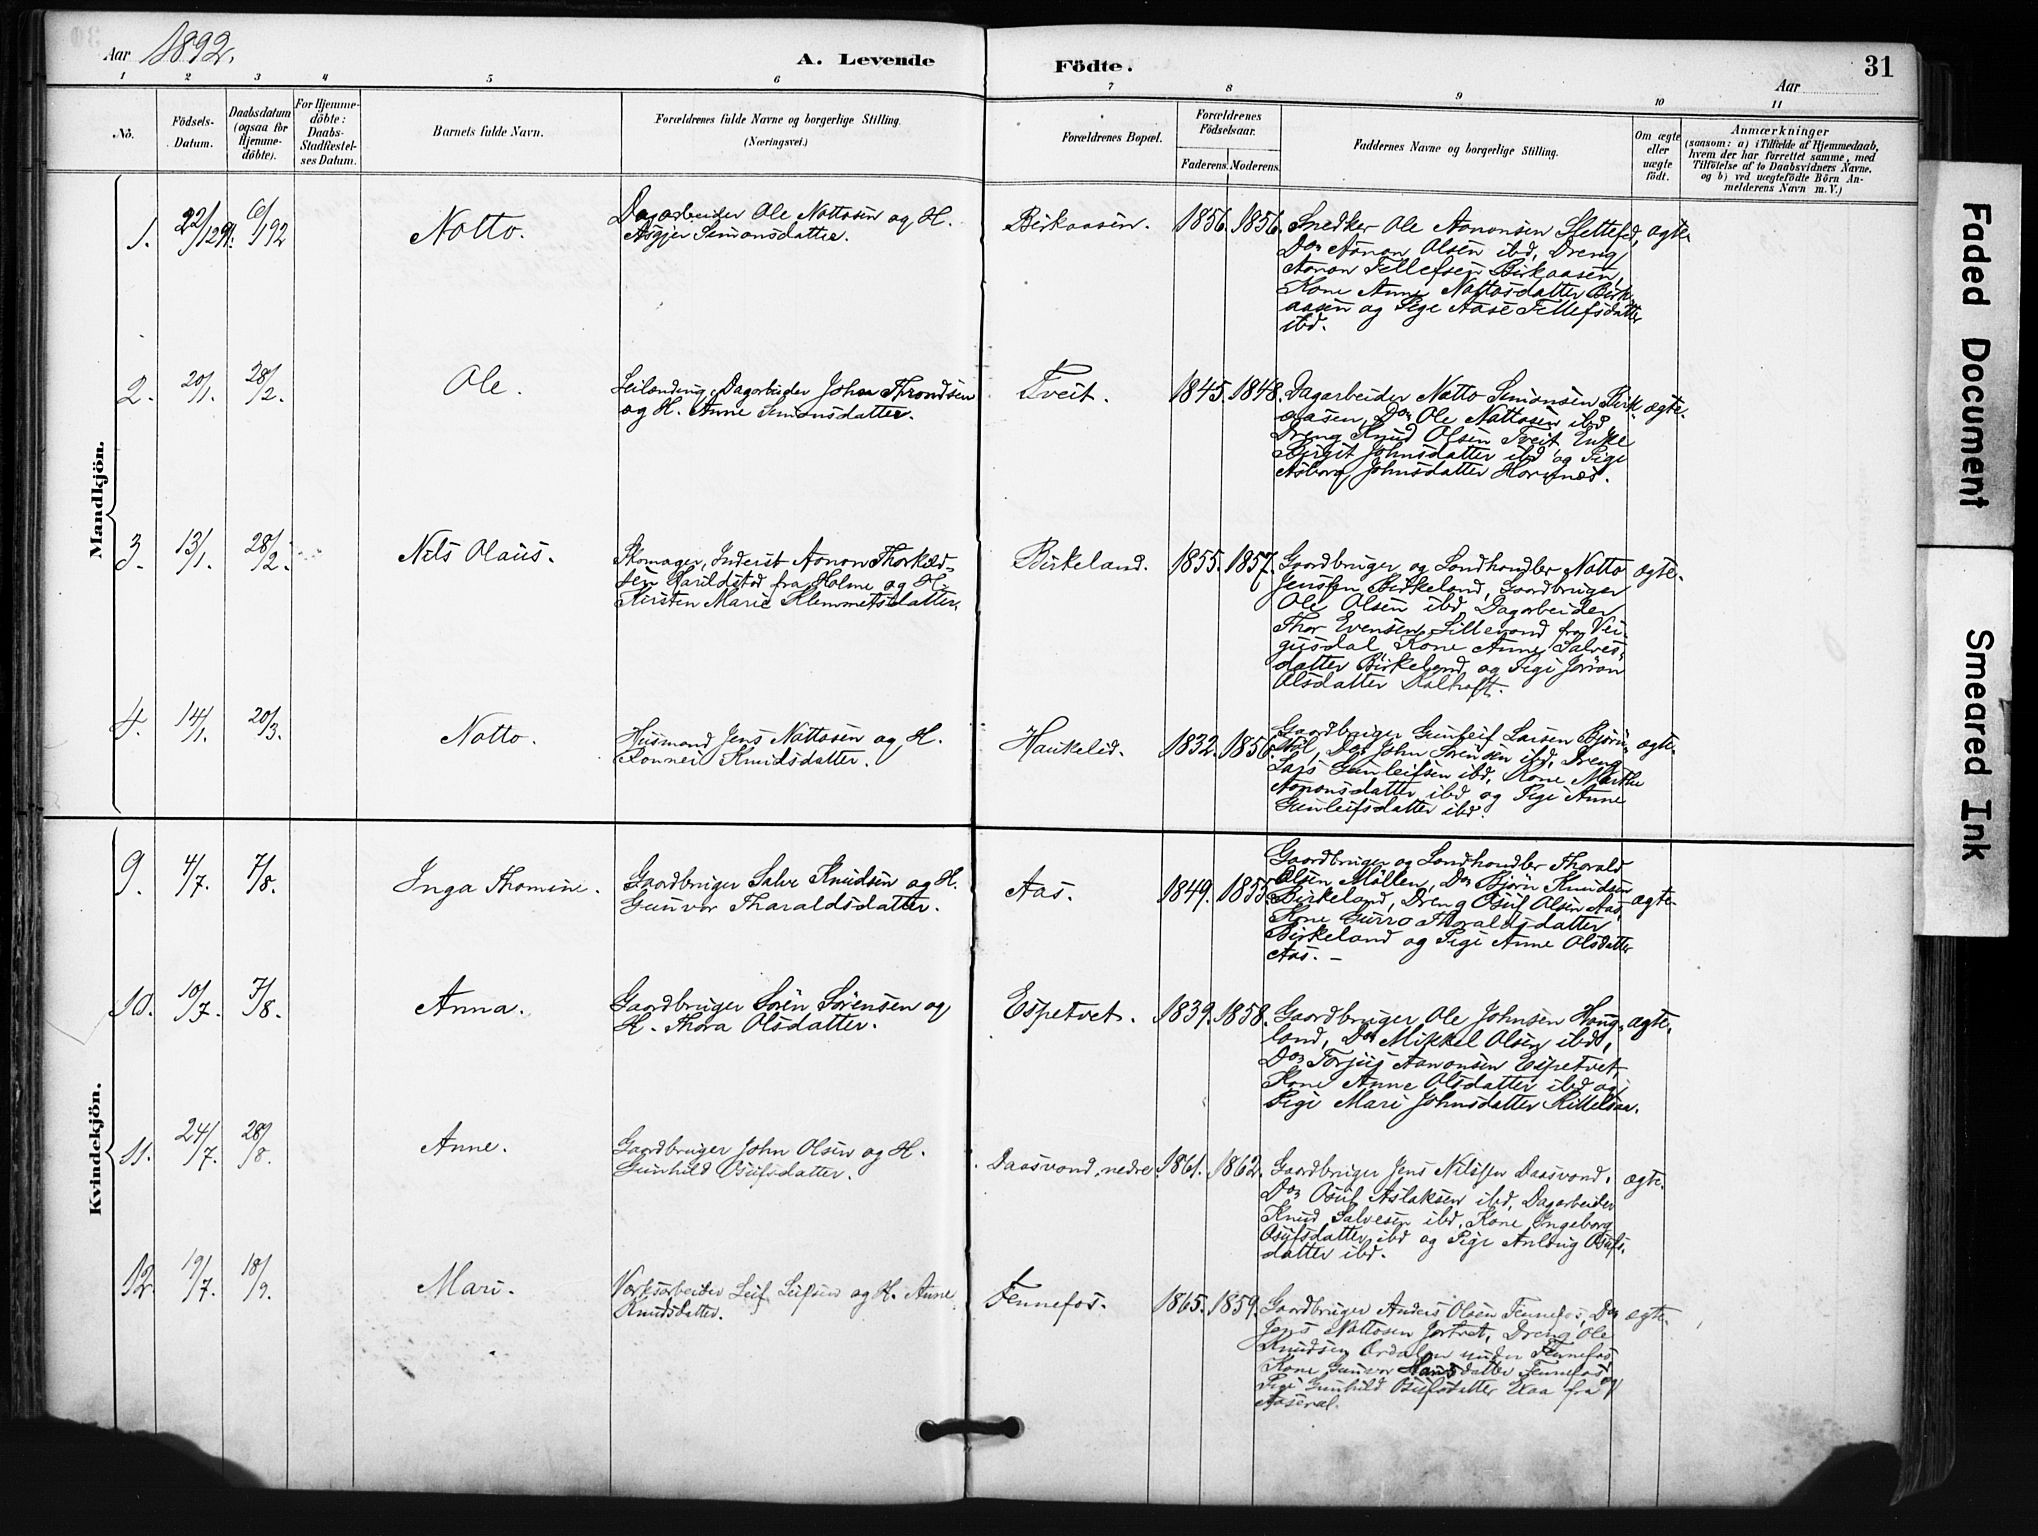 Aar 1892.
A. Levende
Födte.
Aar
31
1 2 3 4 5 6 7 8 9 10 11
No.
Födsels-
Datum.
Daabsdatum
(ogsaa for
Hjemme-
döbte).
For Hjemme-
döbte:
Daabs-
Stadfæstel-
ses Datum.
Barnets fulde Navn.
Forældrenes fulde Navne og borgerlige Stilling.
(Næringsvei.)
Forældrenes Bopæl.
Forældrenes
Födselsaar.
Faderens. Moderens.
Faddernes Navne og borgerlige Stilling.
Om ægte
eller
uægte
födt.
Anmærkninger
(saasom: a) i Tilfælde af Hjemmedaab,
hvem der har forrettet samme, med
Tilföielse af to Daabsvidners Navne.
og b) ved uægtefödte Börn An-
melderens Navn m. V.)
Mandkjön.
1. 22/12 91. 6/1 92 Notto.
Dagarbeider Ole Nottosen og H.
Asgjer Simonsdatter.
Birkaasen. 1856. 1856.
Snedker Ole Aanonsen Slettefed,
Do Aanon Olsen ibd, Dreng
Aanon Tellefsen Birkaasen,
Kone Anne Nottosdatter Birk-
aasen og Pige Aase Tellefsdatter
ibd.
ægte.
2. 20/1. 28/2. Ole.
Leilænding, Dagarbeider John Throndsen
og H. Anne Simonsdatter.
Tveit. 1845. 1848.
Dagarbeider Notto Simonsen Birk-
aasen, Do Ole Nottosen ibd
Dreng Knud Olsen Tveit Enke
Birgit Johnsdatter ibd og Pige
Asborg Johnsdatter Hornnes.
ægte.
3. 13/1. 28/2. Nils Olaus.
Skomager, Inderst Aanon Thorkild-
sen Harildstad fra Holme og H.
Kirsten Marie Klemmetsdatter.
Birkeland. 1855. 1857.
Gaardbruger og Landhandler Notto
Jenssen Birkeland, Gaardbruger
Ole Olsen ibd, Dagarbeider
Thor Evensen Lillevand fra Vei-
gusdal, Kone Anne Salves-
datter Birkeland og Pige Jöran
Olsdatter Kalhoft.
ægte.
4. 14/1. 20/3. Notto.
Husmand Jens Nottosen og H.
Ronnei Knudsdatter.
Haukelid. 1832. 1856.
Gaardbruger Gunleif Larsen Björn-
stöl, Do John Sörensen ibd, Dreng
Lars Gunleifsen ibd, Kone Marthe
Aanonsdatter ibd og Pige Anne
Gunleifsdatter ibd.
ægte.
Kvindekjön.
9. 4/7. 7/8. Inga Thomine.
Gaardbruger Salve Knudsen og H.
Gunvor Tharaldsdatter.
Aas. 1849. 1855.
Gaardbruger og Landhandler Tharald
Olsen Möllen, Do Björn Knudsen
Birkeland, Dreng Osuf Olsen Aas,
Kone Gurro Tharaldsdatter
Birkeland og Pige Anne Olsdatter
Aas. –
ægte.
10. 10/7. 7/8. Anna.
Gaardbruger Sören Sörensen og
H. Thora Olsdatter.
Espetvet. 1839. 1858.
Gaardbruger Ole Johnsen Haug-
land, Do Mikkel Olsen ibd,
Do Torjus Aanonsen Espetvet,
Kone Anne Olsdatter ibd og
Pige Mari Johnsdatter Kittelsaa.
ægte.
11. 24/7. 28/8. Anne.
Gaardbruger John Olsen og H.
Gunhild Osufsdatter.
Daasvand, nedre. 1861. 1862.
Gaardbruger Jens Nilssen Daasvand.
Do Osuf Aslaksen ibd, Dagarbeider
Knud Salvesen ibd, Kone Ingeborg
Osufsdatter ibd og Pige Anlaug Osufs-
datter ibd.
ægte.
12. 19/7. 18/9. Mari.
Værksarbeider Leif Leifsen og H. Anne
Knudsdatter.
Fennefos. 1865. 1859.
Gaardbruger Anders Olsen Fennefos, Do
Jens Nottosen Jortvet, Dreng Ole
Knudsen Ordalen under Fennefos,
Kone Gunvor Hansdatter Fennefos og
Pige Gunhild Osufsdatter Exaa fra
Aaseral.
ægte.
Faded Document
Smeared Ink